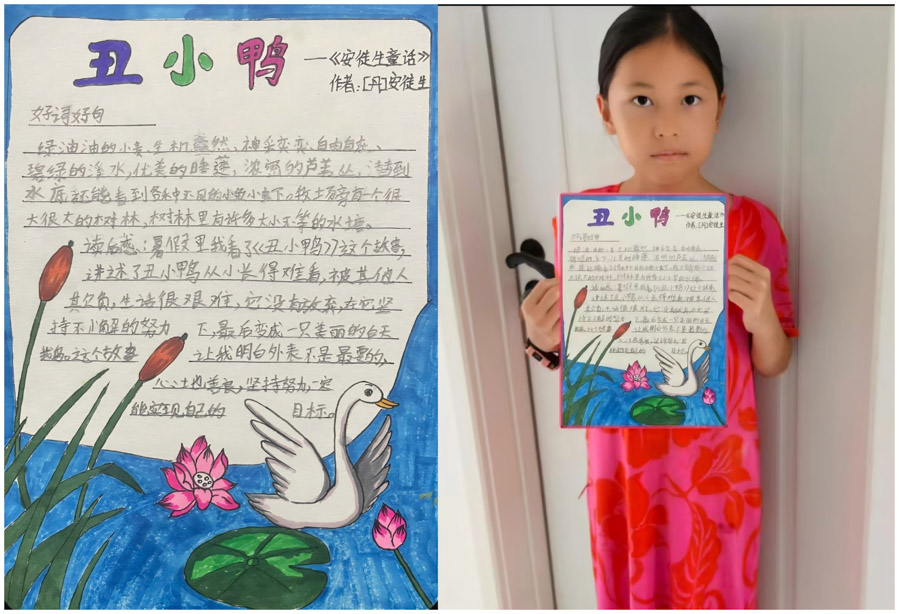 丑小鸭
—《安徒生童话》
作者:[丹]安徒生
好词好句
绿油油的小麦、生机盎然、神采奕奕、自由自在、
碧绿的深水,优美的睡莲,浓密的芦苇丛,清到
水底还能看到
大很大的树林,树林里有许多大小不等的水塘。
读后感:暑假里我看了《丑小鸭》这个故事,
讲述了丑小鸭从小长得难看,被其他人
欺负,生活很艰难,它没有放弃,在它坚
持不懈的努力 下,最后变成一只美丽的白天
鹅。这个故事 让我明白外表不是最重要的,
心地善良,坚持努力一定
能实现自己的 目标。
丑小鸭
—《安徒生童话》
作者:[丹]安徒生